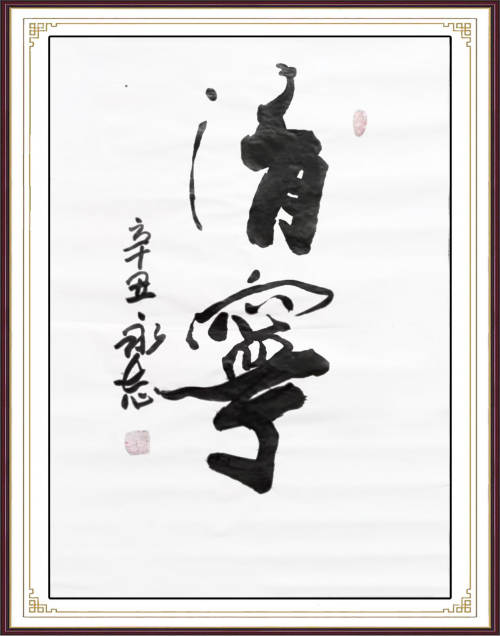 清寧
辛丑 永志